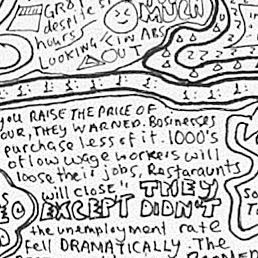 GRA
despite s
MUCH
hours
LOOKING IN ABS
OUT
you RAISE THE PRICE OF
OUR, THEY WARNED. Businesses
purchase less of it. 1000's
of low wage workers will
loose their jobs, Restaraunts
will close" THEY
EXCEPT DIDN'T
the unemployment rate
fell DRAMATICALLY. The